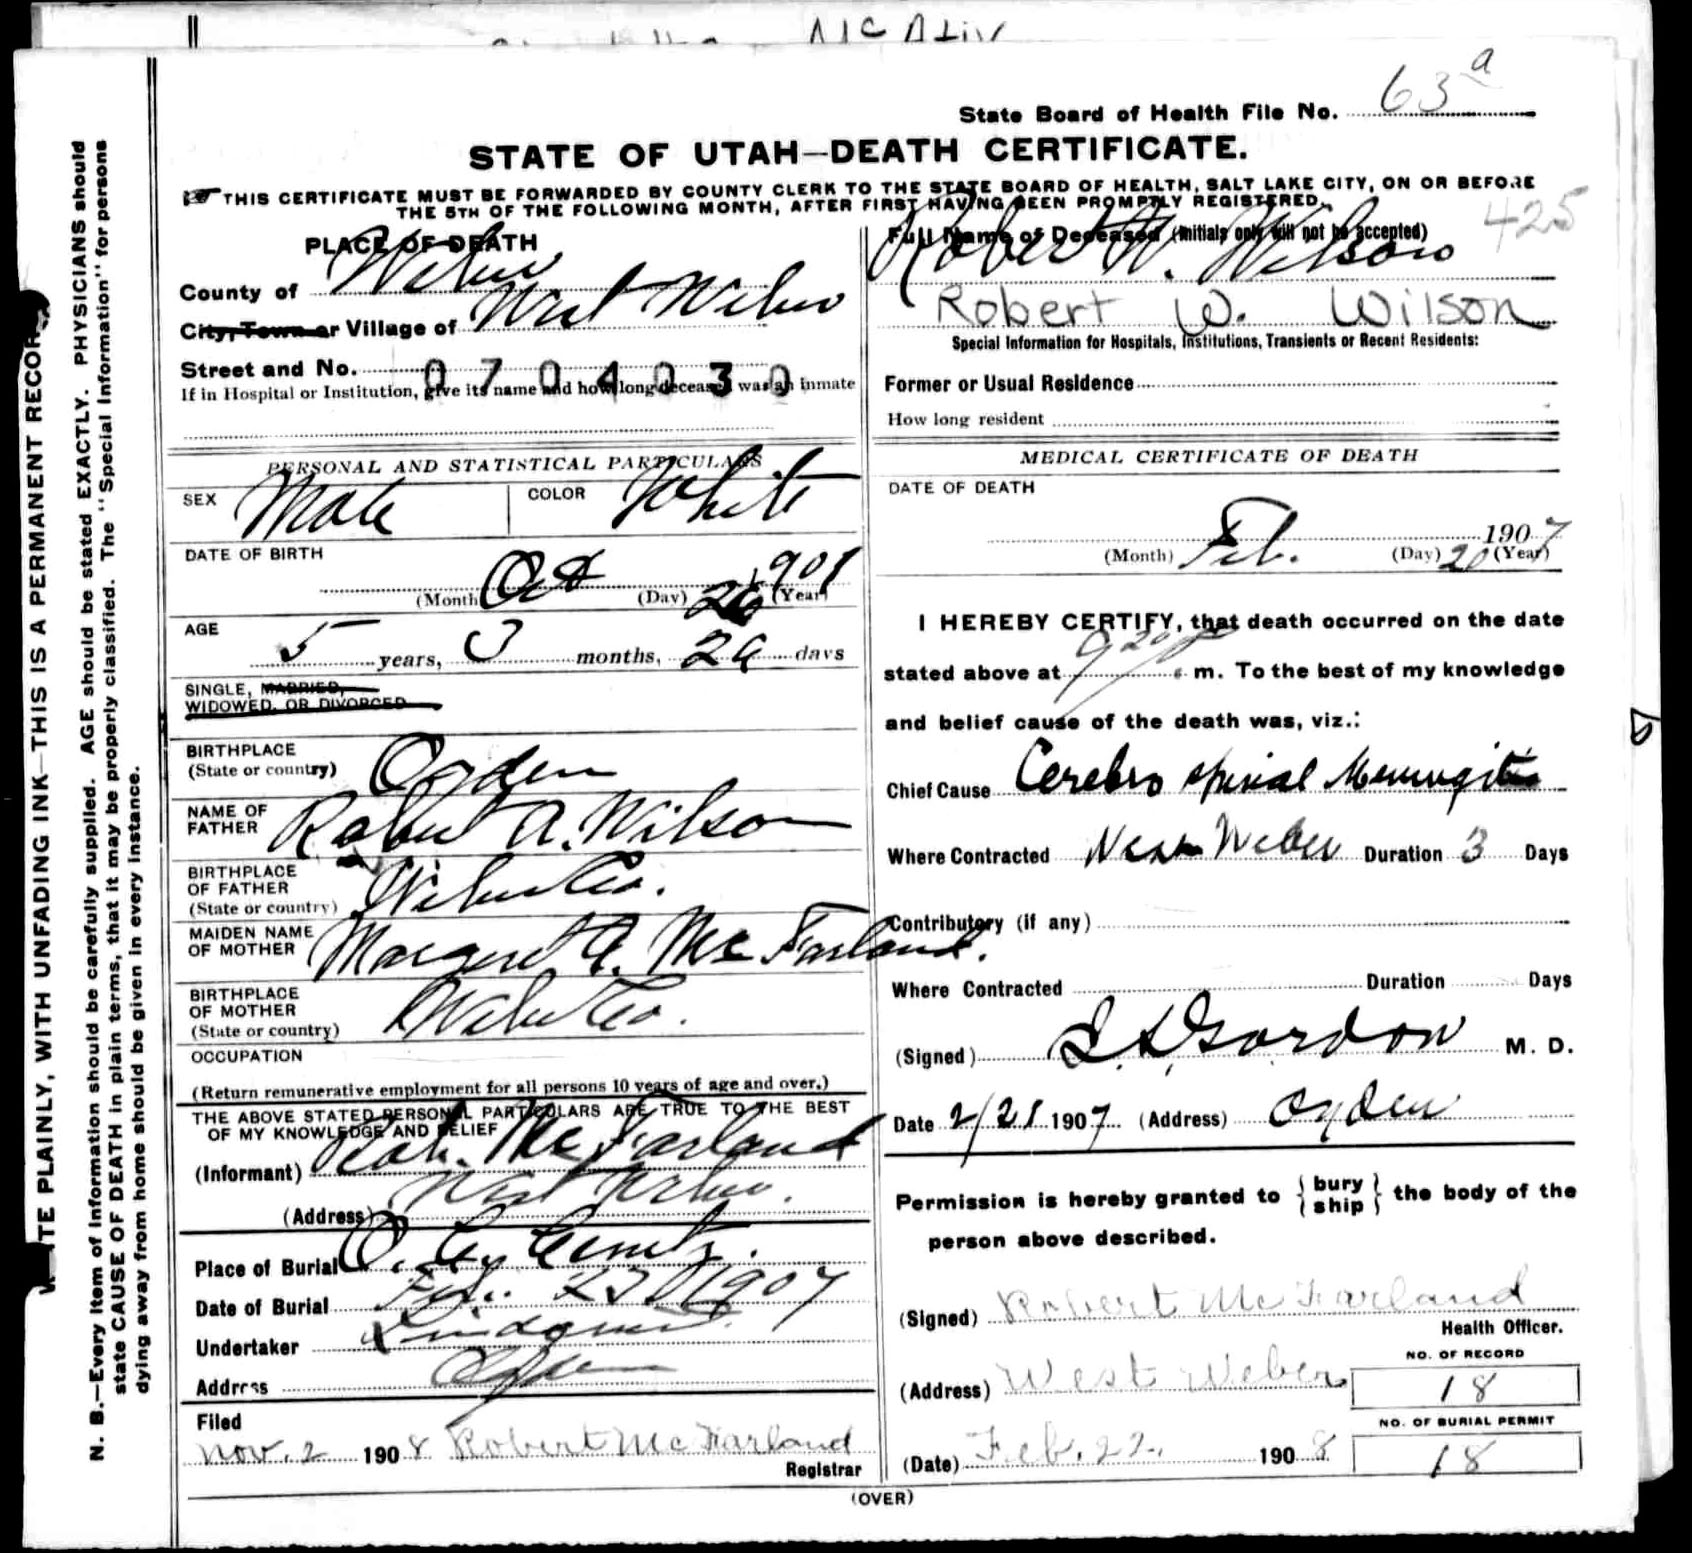 McAliv
State Board of Health File No. 63 a
STATE OF UTAH—DEATH CERTIFICATE.
THIS CERTIFICATE MUST BE FORWARDED BY COUNTY CLERK TO THE STATE BOARD OF HEALTH, SALT LAKE CITY, ON OR BEFORE
THE 5TH OF THE FOLLOWING MONTH, AFTER FIRST HAVING BEEN PROMPTLY REGISTERED.
425
PLACE OF DEATH
County of Weber
City, Town or Village of West Weber
Street and No. 0704030
If in Hospital or Institution, give its name and how long deceased was an inmate
Full Name of Deceased (Initials only will not be accepted)
Robert W. Wilson
Robert W. Wilson
Special Information for Hospitals, Institutions, Transients or Recent Residents:
Former or Usual Residence
How long resident
PERSONAL AND STATISTICAL PARTICULARS
SEX Male COLOR White
DATE OF BIRTH
Oct 26 1901
(Month) (Day) (Year)
AGE
5 years, 3 months, 26 days
SINGLE, MARRIED,
WIDOWED, OR DIVORCED
BIRTHPLACE
(State or country) Ogden
NAME OF
FATHER Robert A. Wilson
BIRTHPLACE
OF FATHER
(State or country) Weber Co.
MAIDEN NAME
OF MOTHER Margaret A. McFarland.
BIRTHPLACE
OF MOTHER
(State or country) Weber Co.
OCCUPATION
(Return remunerative employment for all persons 10 years of age and over.)
THE ABOVE STATED PERSONAL PARTICULARS ARE TRUE TO THE BEST
OF MY KNOWLEDGE AND BELIEF
(Informant) Robt. McFarland
(Address) West Weber.
Place of Burial O. City Cemetery.
Date of Burial Feb. 23 1907
Undertaker Lindquist
Address Ogden
Filed
Nov. 2 1908 Robert McFarland
Registrar
MEDICAL CERTIFICATE OF DEATH
DATE OF DEATH
Feb. 20 1907
(Month) (Day) (Year)
I HEREBY CERTIFY, that death occurred on the date
stated above at 9 20 P. m. To the best of my knowledge
and belief cause of the death was, viz.:
Chief Cause Cerebro spinal Meningitis
Where Contracted West Weber Duration 3 Days
Contributory (if any)
Where Contracted Duration Days
(Signed) Gordon M. D.
Date 2/21 1907 (Address) Ogden
Permission is hereby granted to { bury ship } the body of the
person above described.
(Signed) Robert McFarland
Health Officer.
(Address) West Weber
NO. OF RECORD
18
NO. OF BURIAL PERMIT
18
(Date) Feb. 22, 1908
(OVER)
WRITE PLAINLY, WITH UNFADING INK—THIS IS A PERMANENT RECORD
N. B.—Every item of information should be carefully supplied. AGE should be stated EXACTLY. PHYSICIANS should
state CAUSE OF DEATH in plain terms, that it may be properly classified. The "Special Information" for persons
dying away from home should be given in every instance.